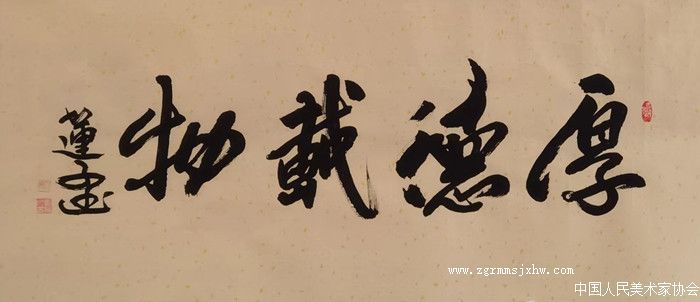 厚德載物
www.zgrmmsjxhw.com
中国人民美术家协会